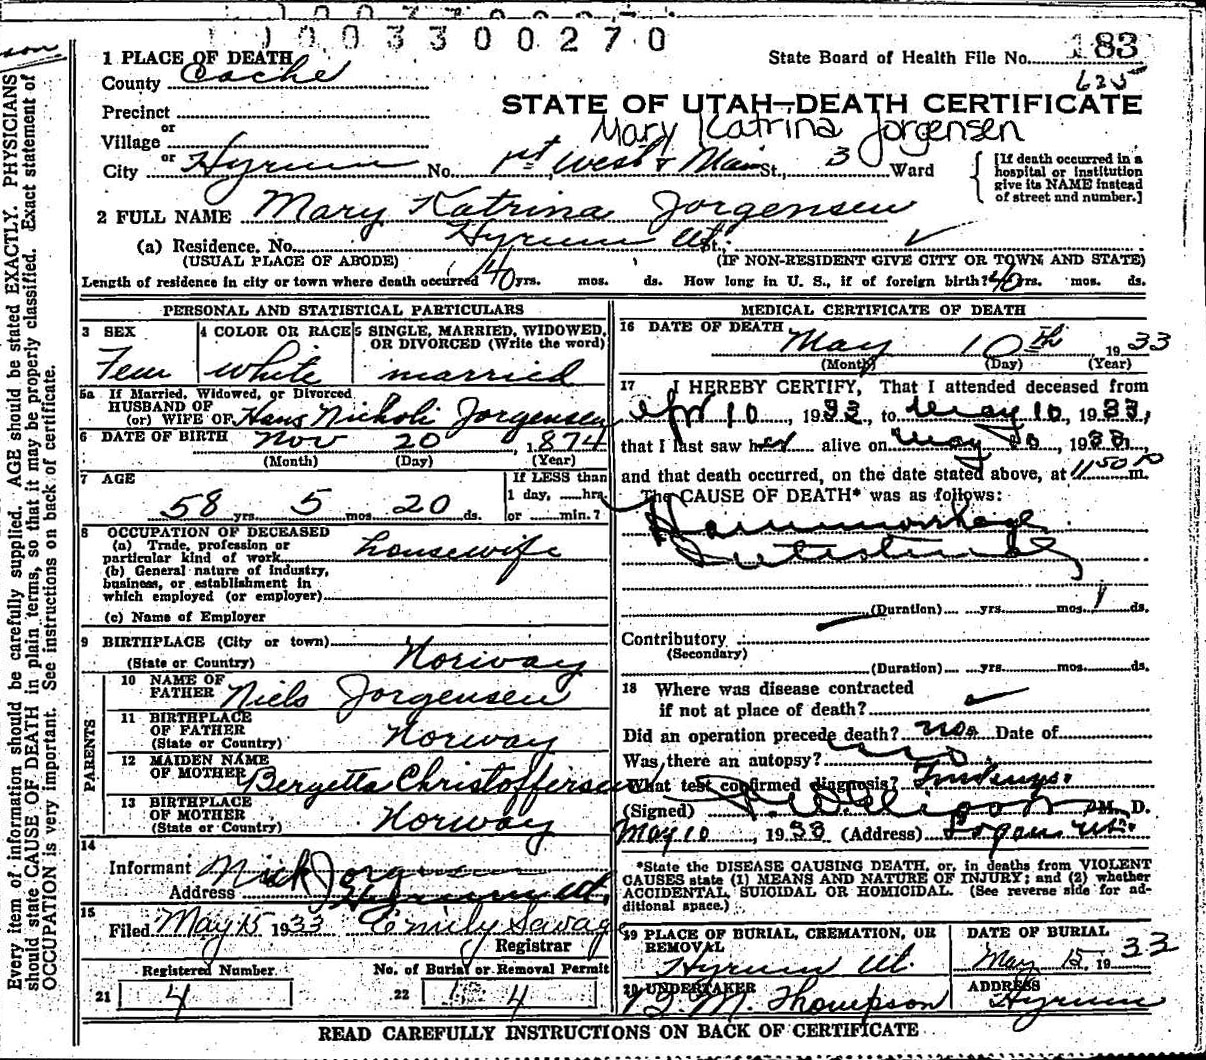 1 0 0 3 3 0 0 2 7 0
State Board of Health File No. 183
625
STATE OF UTAH—DEATH CERTIFICATE
Mary Katrina Jorgensen
1 PLACE OF DEATH
County Cache
Precinct
or
Village
or
City Hyrum No. 1st West & Main St., 3 Ward
[If death occurred in a
hospital or institution
give its NAME instead
of street and number.]
2 FULL NAME Mary Katrina Jorgensen
(a) Residence. No. Hyrum Ut. St.
(USUAL PLACE OF ABODE) (IF NON-RESIDENT GIVE CITY OR TOWN AND STATE)
Length of residence in city or town where death occurred 40 yrs. mos. ds. How long in U. S., if of foreign birth? 40 yrs. mos. ds.
PERSONAL AND STATISTICAL PARTICULARS
3 SEX
Fem
4 COLOR OR RACE
white
5 SINGLE, MARRIED, WIDOWED,
OR DIVORCED (Write the word)
married
5a If Married, Widowed, or Divorced
HUSBAND OF
(or) WIFE OF Hans Nicholi Jorgensen
6 DATE OF BIRTH Nov 20, 1874
(Month) (Day) (Year)
7 AGE
58 yrs. 5 mos. 20 ds.
If LESS than
1 day, hrs.
or min.?
8 OCCUPATION OF DECEASED
(a) Trade, profession or
particular kind of work housewife
(b) General nature of industry,
business, or establishment in
which employed (or employer)
(c) Name of Employer
9 BIRTHPLACE (City or town)
(State or Country) Norway
PARENTS
10 NAME OF
FATHER Niels Jorgensen
11 BIRTHPLACE
OF FATHER
(State or Country) Norway
12 MAIDEN NAME
OF MOTHER Bergetta Christoffersen
13 BIRTHPLACE
OF MOTHER
(State or Country) Norway
14
Informant Nick Jorgensen
Address Hyrum Ut.
15
Filed May 15 1933 Emily Savage
Registrar
Registered Number
21 4
No. of Burial or Removal Permit
22 4
MEDICAL CERTIFICATE OF DEATH
16 DATE OF DEATH
May 10th 1933
(Month) (Day) (Year)
17 I HEREBY CERTIFY, That I attended deceased from
Apr 10, 1933, to May 10, 1933,
that I last saw her alive on May 10, 1933,
and that death occurred, on the date stated above, at 11:50 P m.
The CAUSE OF DEATH* was as follows:
Haemorrhage
Intestinal
(Duration) yrs. mos. 1 ds.
Contributory
(Secondary)
(Duration) yrs. mos. ds.
18 Where was disease contracted
if not at place of death?
Did an operation precede death? no Date of
Was there an autopsy? no
What test confirmed diagnosis?
(Signed) M. D.
May 10, 1933 (Address) Logan Ut.
*State the DISEASE CAUSING DEATH, or, in deaths from VIOLENT
CAUSES state (1) MEANS AND NATURE OF INJURY; and (2) whether
ACCIDENTAL, SUICIDAL OR HOMICIDAL. (See reverse side for ad-
ditional space.)
19 PLACE OF BURIAL, CREMATION, OR
REMOVAL
Hyrum Ut.
DATE OF BURIAL
May 15, 1933
20 UNDERTAKER
M. Thompson
ADDRESS
Hyrum
READ CAREFULLY INSTRUCTIONS ON BACK OF CERTIFICATE
Every item of information should be carefully supplied. AGE should be stated EXACTLY. PHYSICIANS
should state CAUSE OF DEATH in plain terms, so that it may be properly classified. Exact statement of
OCCUPATION is very important. See instructions on back of certificate.